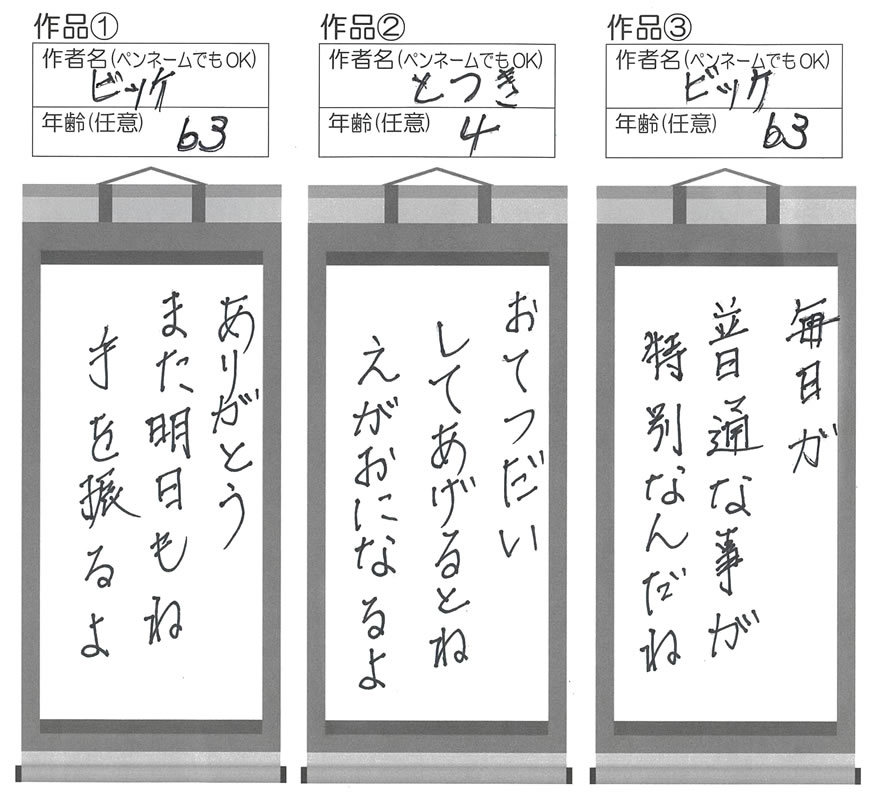 作品①
作者名(ペンネームでもOK)
ビッケ
年齢(任意)
63
ありがとう
また明日もね
手を振るよ
作品②
作者名(ペンネームでもOK)
とつき
年齢(任意)
4
おてつだい
してあげるとね
えがおになるよ
作品③
作者名(ペンネームでもOK)
ビッケ
年齢(任意)
63
毎日が
普通な事が
特別なんだね